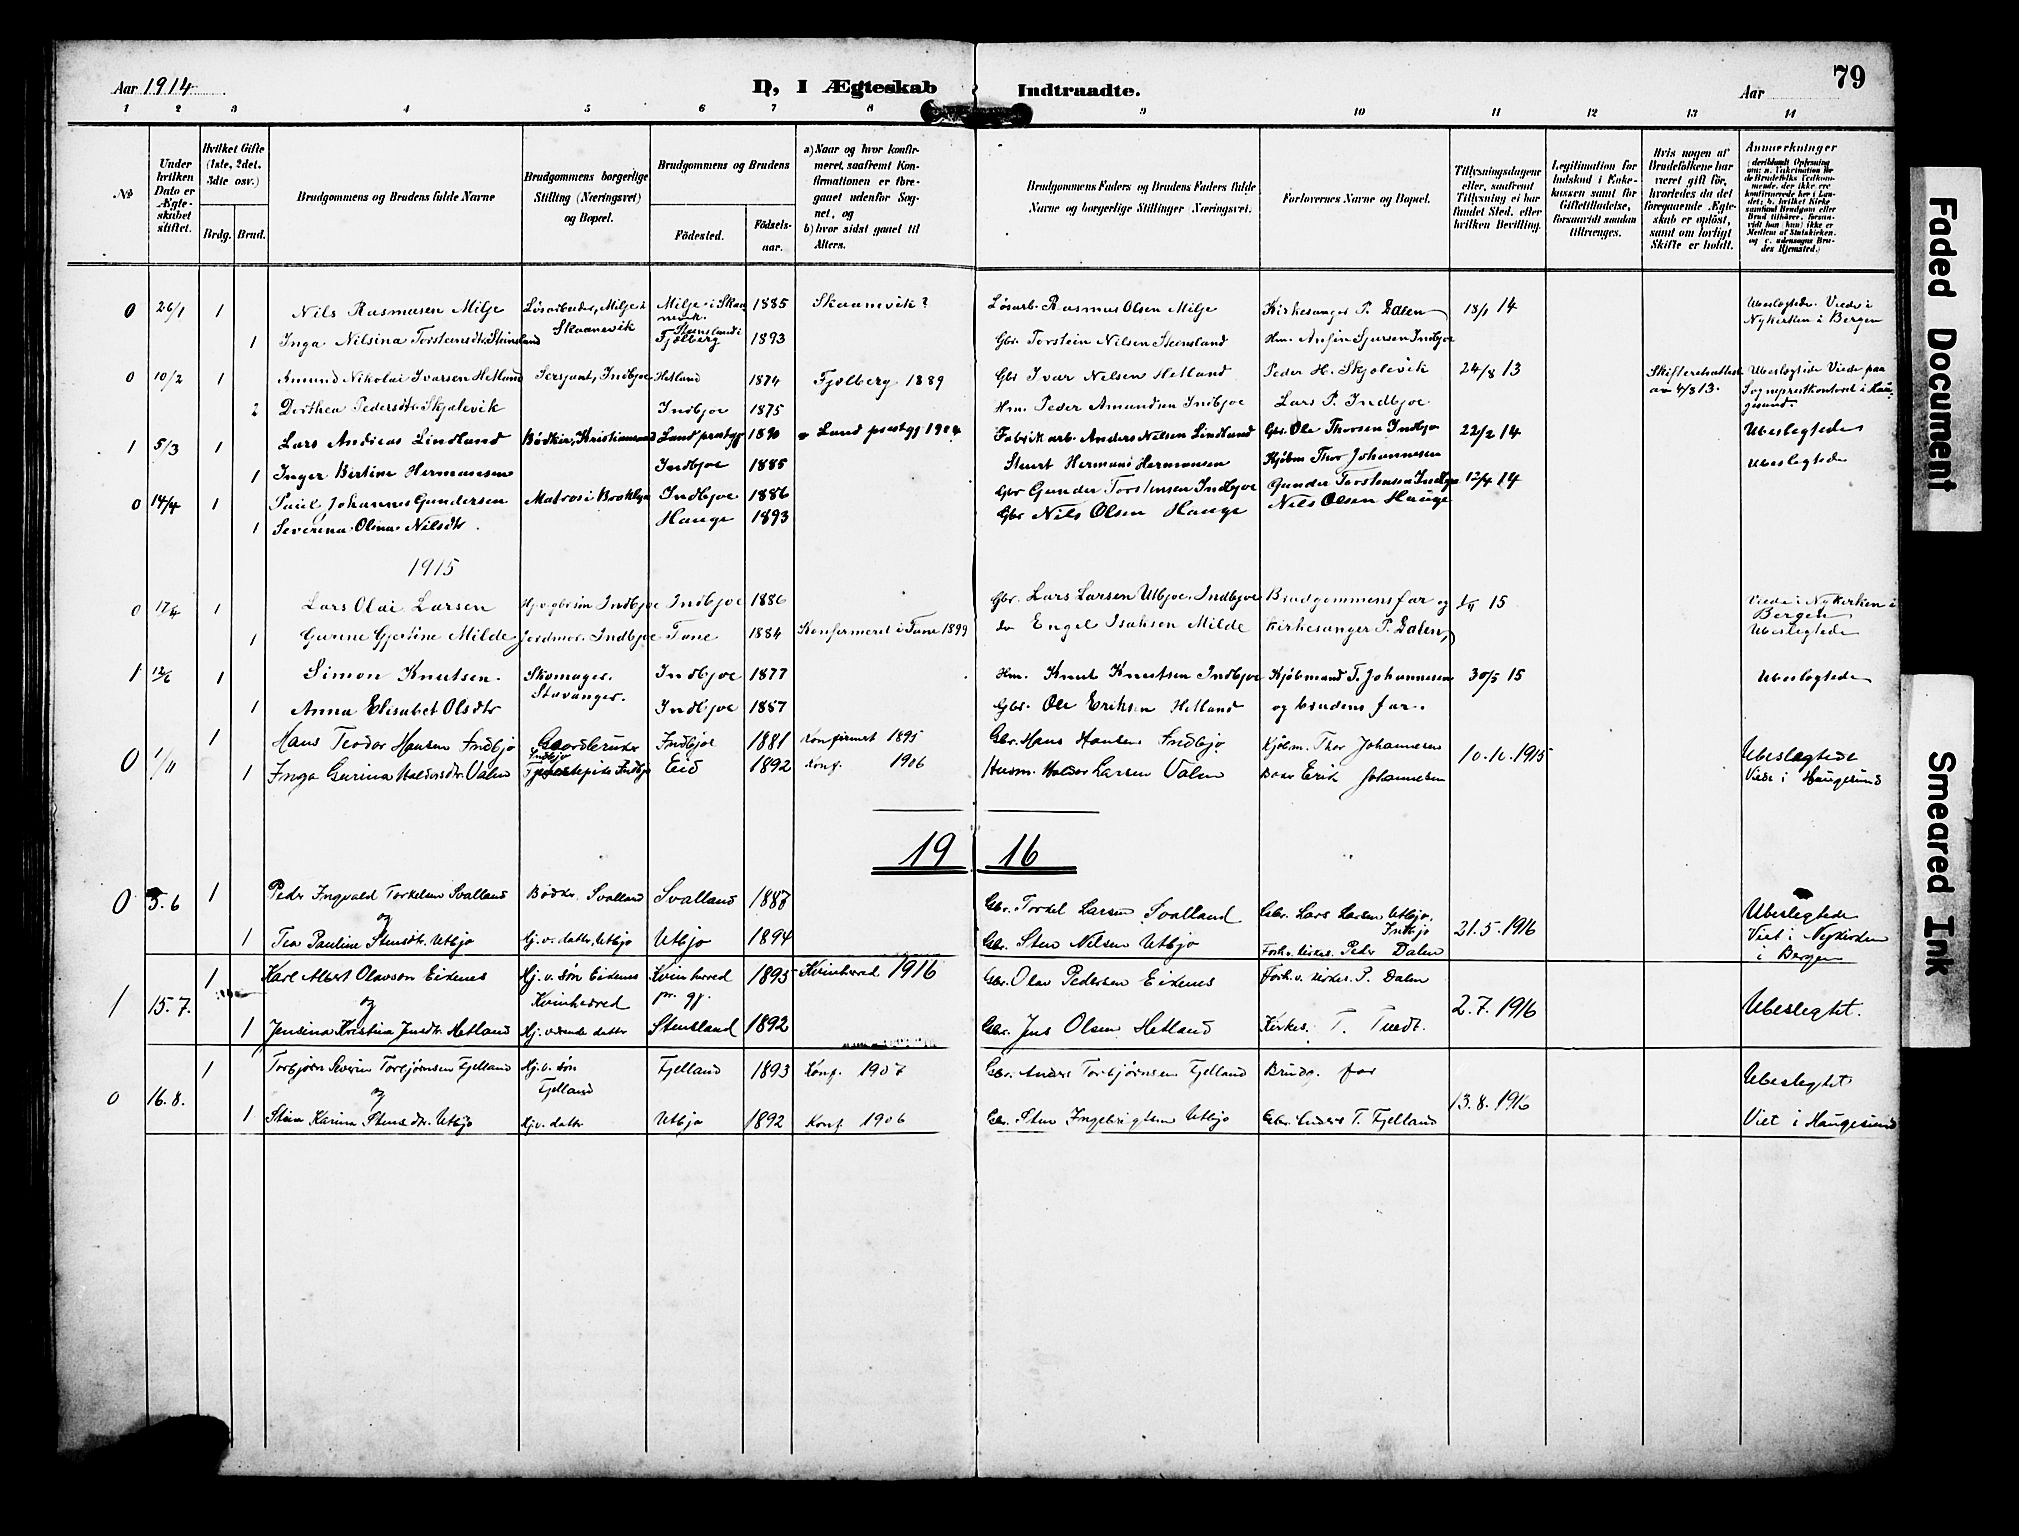 Aar 1914 D, I Ægteskab Indtraadte. Aar 79
1 2 3 4 5 6 7 8 9 10 11 12 13 14
No
Under hvilken Dato er Ægteskabet stiftet.
Hvilket Gifte (1ste, 2det, 3die osv.)
Brdg. Brud.
Brudgommens og Brudens fulde Navne
Brudgommens borgerlige Stilling (Næringsvei) og Bopæl.
Brudgommens og Brudens
Födested. Födselsaar.
a) Naar og hvor konfirmeret, saafremt Konfirmationen er foregaaet udenfor Sognet, og
b) hvor sidst gaaet til Alters.
Brudgommens Faders og Brudens Faders fulde Navne og borgerlige Stillinger (Næringsvei.
Forlovernes Navne og Bopæl.
Tillysningsdagene eller, saafremt Tillysning ei har fundet Sted, efter hvilken Bevilling.
Legitimation for Indskud i Enkekassen samt for Giftetilladelse, forsaavidt saadan tiltrænges.
Hvis nogen af Brudefolkene har været gift før, hvorledes da det foregaaende Ægteskab er opløst, samt om lovligt Skifte er holdt.
Anmærkninger
0 26/1 1 Nils Rasmusen Milje Løsarbeider, Milje i Skaanevik Milje i Skaanevik 1885 Skaanevik? Løsarb. Rasmus Olsen Milje Kirkesanger P. Dalen 18/1 14 Ubeslegtede. Viede i Nykirken i Bergen
1 Inga Nilsina Torsteinsdtr. Steinsland Steinsland i Fjelberg 1893 Gbr. Torstein Nilsen Steinsland Hm. Anfin Sjursen Indbjoe
0 10/2 1 Amund Nikolai Ivarsen Hetland Sersjant, Indbjoe Hetland 1874 Fjelberg 1889 Gbr Ivar Nelsen Hetland Peder H. Skjolevik 24/8 13 Skifteretsattest av 4/8 13. Ubeslegtede Viede paa Sogneprestkontoret i Haugesund.
2 Dorthea Pedersdtr. Skjolevik Indbjoe 1875 Hm. Peder Amundsen Indbjoe Lars P. Indbjoe
1 5/3 1 Lars Andreas Lindland Bødker, Kristianssand Lund prestgj 1890 Lund prestgj 1904 Fabrikarb. Anders Nilsen Lindland Gbr. Ole Thorsen Indbjo 22/2 14 Ubeslegtede
1 Inger Bertine Hermansen Indbjoe 1885 Stuert Hermans Hermansen Kjøbm Thor Johannesen Ubeslegtede
0 14/4 1 Paul Johannes Gundersen Matros i Brooklyn Indbjoe 1886 Gbr Gunder Torstensen Indbjoe Gunder Torstensen Indbjo 12/4 14
1 Severina Olina Nilsdtr. Hauge 1893 Gbr Nils Olsen Hauge Nils Olsen Hauge
1915
0 17/4 1 Lars Olai Larsen Indbjoe Indbjoe 1886 Gbr. Lars Larsen Utbjoe, Indbjoe Brudgommens far og 15 Viede i Nykirken i Bergen
1 Gurine Gjertine Milde Jordmor. Indbjoe Tune 1884 Konfirmeret i Tune 1899 do Engel Isaksen Milde Kirkesanger P. Dalen Ubeslegtede
1 12/6 1 Simon Knutsen. Skomager. Stavanger. Indbjoe 1877 Hm. Knut Knutsen Indbjoe Kjøbmand T. Johannesen 30/5 15 Ubeslegtede
1 Anna Elisabet Olsdtr Indbjoe 1887 Gbr. Ole Eriksen Hetland og brudens far.
0 1/11 1 Hans Teodor Hansen Indbjo Gaardbruker Indbjo Indbjoe 1881 Konfirmert 1895 Gbr. Hans Hansen Indbjo Kjøbm. Thor Johannesen 10.10.1915 Ubeslegtede
1 Inga Gurina Haldorsdtr. Valen Indbjo Eid 1892 Konf. 1906 Husm. Haldor Larsen Valen Erik Johannesen Viede i Haugesund
1916
0 5.6 1 Peder Ingvald Torkelsen Svalland Bødker. Svalland Svalland 1888 Gbr. Torkel Larsen Svalland Gbr. Lars Larsen Utbjo, Indbjo 21.5.1916 Ubeslegtede
og
1 Tea Pauline Stensdtr. Utbjo Hj. v. datter, Utbjo Utbjo 1894 Gbr. Sten Nilsen Utbjo Forh. v. kirkes. Peder Dalen Viet i Nykirken i Bergen
1 15.7. 1 Karl Albert Olavson Eidenes Hj. v. søn Eidenes Kvinherred Kvinherred pr. gj. 1895 Kvinherred 1916 Gbr. Olav Pedersen Eidenes Forh. v. kirkes. P. Dalen 2.7.1916 Ubeslegtet.
og
1 Jensina Kristina Jensdtr. Hetland Hj. værende datter Stensland 1892 Gbr. Jens Olsen Hetland Kirkes. T. Tuedt.
0 16.8. 1 Torbjørn Severin Torbjørnsen Fjelland Hj. v. søn Fjelland Fjelland 1893 Konf. 1907 Gbr. Anders Torbjørnsen Fjelland Brudg. far 13.8.1916 Ubeslegtet
og
1 Stina Karina Stensdtr. Utbjo Hj. v. datter Utbjo 1892 Konf 1906 Gbr. Sten Ingebrigtsen Utbjo Gbr. Anders T. Fjelland Viet i Haugesund
Faded Document
Smeared Ink